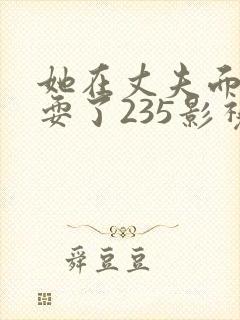 她在丈夫而
耍了235影视
舜豆豆